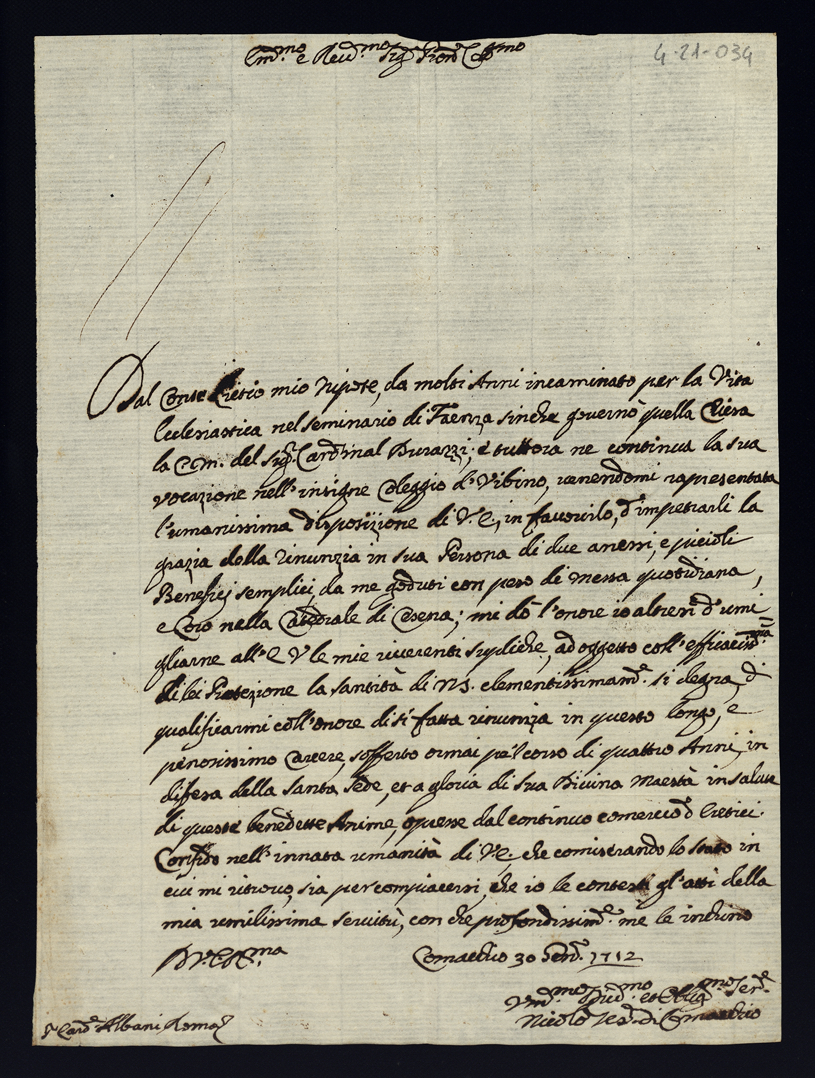 Em.mo e Reud.mo Sig.r Pron.e Coll.mo
4-21-034
Dal Conte mio Nipote, da molti Anni incaminato per la Vita
Ecclesiastica nel seminario di Faenza sinche governò quella Chiesa
la C.M. del Sig.r Cardinal Durazzi; e tuttora ne continua la sua
vocazione nell'insigne Coleggio d'Vrbino, venendomi rapresentata
l'umanissima disposizione di V.E., in favorirlo, d'impetrarli la
grazia della rinunzia in sua Persona di due annessi, e piccioli
Beneficj semplici, da me goduti con peso di messa quotidiana,
e Coro nella Catedrale di Cesena; mi dò l'onore io altresi d'umi
gliarne all'E V le mie riverenti supliche, ad oggetto coll'
di lei Protezione la santità di N.S. clementissimam.e si degni, di
qualificarmi coll'onore di si fatta rinunzia in questo longo, e
penosissimo Carcere, sofferto ormai pe'l corso di quattro Anni, in
difesa della Santa Sede, et a gloria di Sua Divina Maestà in salute
di queste benedette Anime, oppresse dal continuo comercio d'Eretici.
Confido nell'innata umanità di V.E. che comiserando lo stato in
cui mi ritrovo, sia per compiacersi, che io le contesti gl'atti della
mia umilissima servitù, con che profondissim.e me le inchino
D V.E. R.ma
Comacchio 30 1712
Vm.mo Diu.mo et Oblig.mo Ser.e
Nicolò Ves.o di Comacchio
S.r Card.e Albani Roma